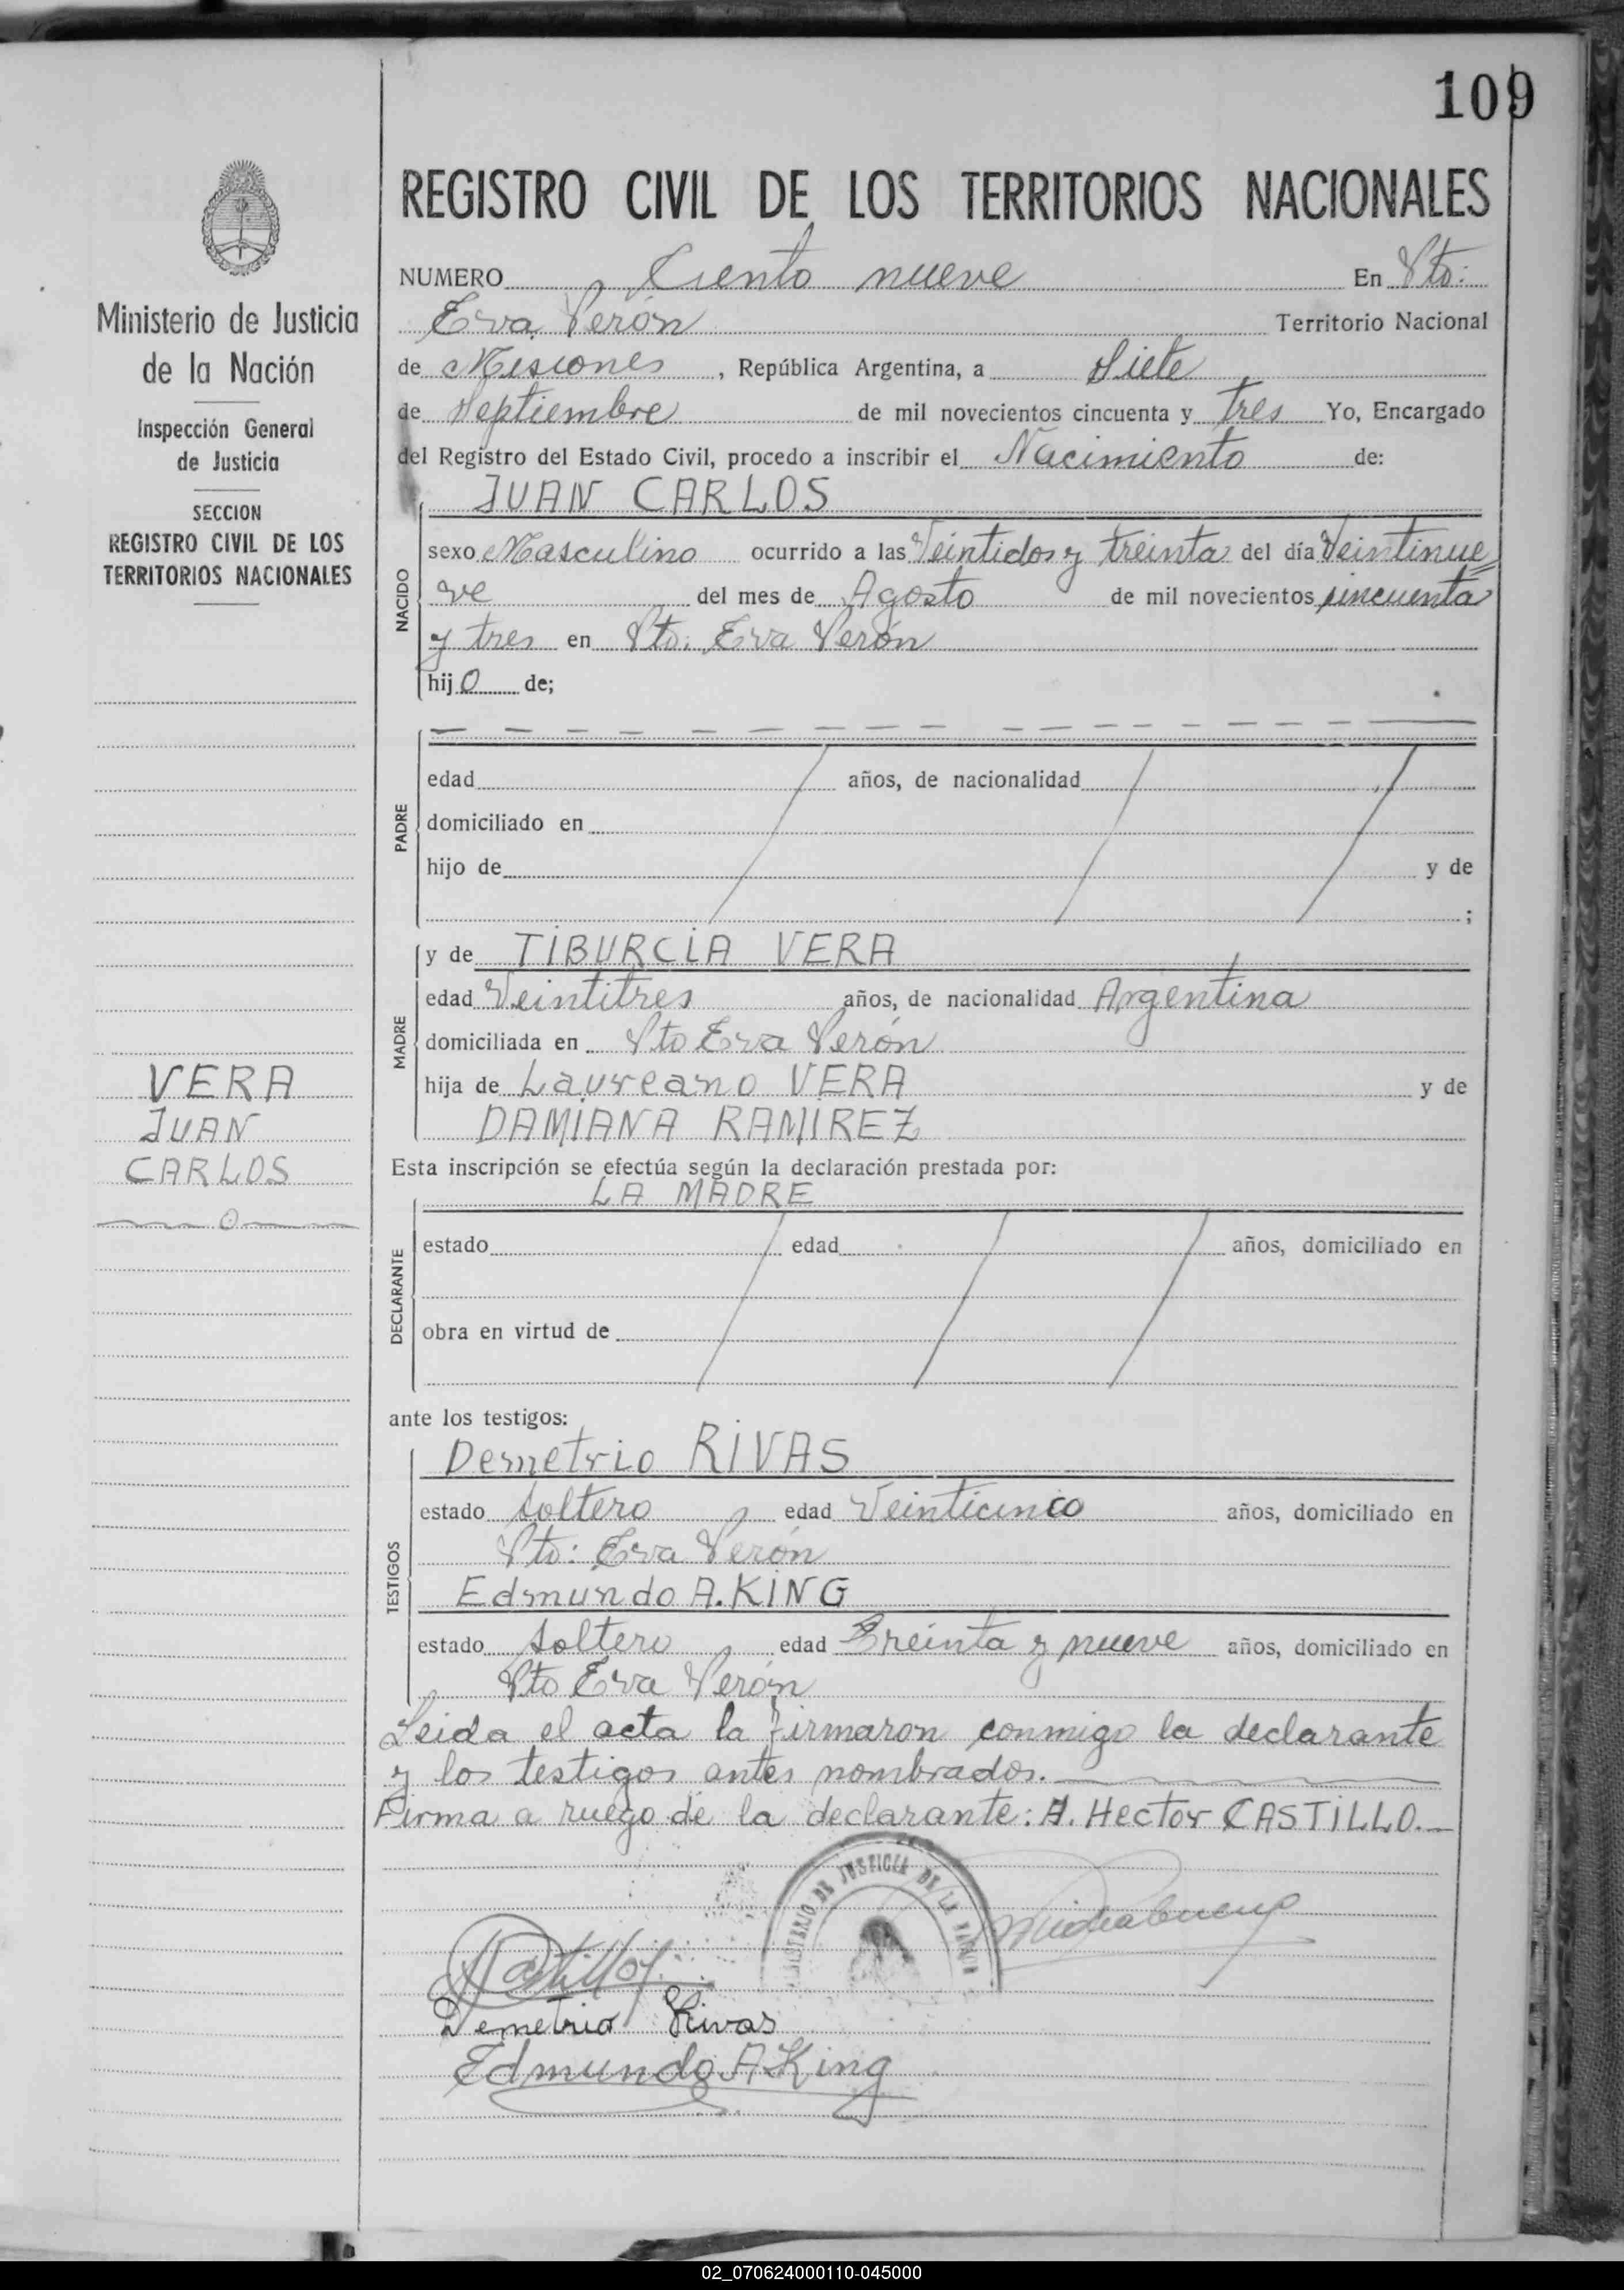 109
REGISTRO CIVIL DE LOS TERRITORIOS NACIONALES
Ministerio de Justicia
de la Nación
Inspección General
de Justicia
SECCION
REGISTRO CIVIL DE LOS
TERRITORIOS NACIONALES
VERA
JUAN
CARLOS
NUMERO Ciento nueve En Pto:
Eva Perón Territorio Nacional
de Misiones, República Argentina, a Siete
de Septiembre de mil novecientos cincuenta y tres Yo, Encargado
del Registro del Estado Civil, procedo a inscribir el Nacimiento de:
JUAN CARLOS
NACIDO
sexo Masculino ocurrido a las Veintidos y treinta del día Veintinue=
ve del mes de Agosto de mil novecientos cincuenta
y tres en Pto: Eva Perón
hijo de;
PADRE
edad años, de nacionalidad
domiciliado en
hijo de y de
;
MADRE
y de TIBURCIA VERA
edad Veintitres años, de nacionalidad Argentina
domiciliada en Pto Eva Perón
hija de Laureano VERA y de
DAMIANA RAMIREZ
Esta inscripción se efectúa según la declaración prestada por:
LA MADRE
DECLARANTE
estado edad años, domiciliado en
obra en virtud de
ante los testigos:
TESTIGOS
Demetrio RIVAS
estado soltero edad Veinticinco años, domiciliado en
Pto: Eva Perón
Edmundo A. KING
estado soltero edad Treinta y nueve años, domiciliado en
Pto Eva Perón
Leida el acta la firmaron conmigo la declarante
y los testigos antes nombrados.
Firma a ruego de la declarante: A. Hector CASTILLO.
MINISTERIO DE JUSTICIA DE LA NACION
Castillo
Demetrio Rivas
Edmundo A King
02_070624000110-045000